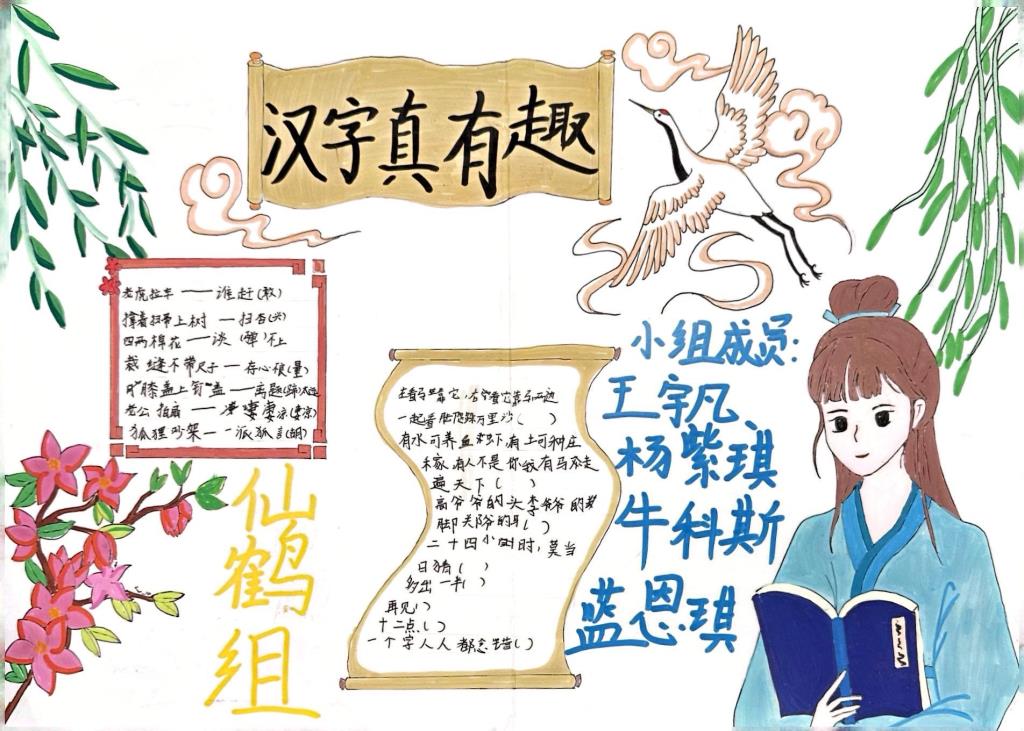 汉字真有趣
老虎拉车——谁赶(敢)
撑着扫帚上树—扫杏(兴)
四两棉花——谈(弹)不上
裁缝不带尺子—存心很(量)
膝盖上钉盖—离题(蹄)太远
老公拍扇——凄凄凉(妻凉)
狐狸吵架—一派狐言(胡)
仙鹤组
一起看脸隐殊万里沙( )
有水可养鱼虾 有土可种庄
禾家 有人不是你我 有马夲走
遍天下( )
高爷爷的头 李爷爷的
脚 郑爷的耳( )
二十四小时时,莫当
日猜( )
多出一半( )
再见( )
十二点( )
一个字人人都念错( )
小组成员:
王宇凡、
杨紫琪
牛科斯
蓝恩琪